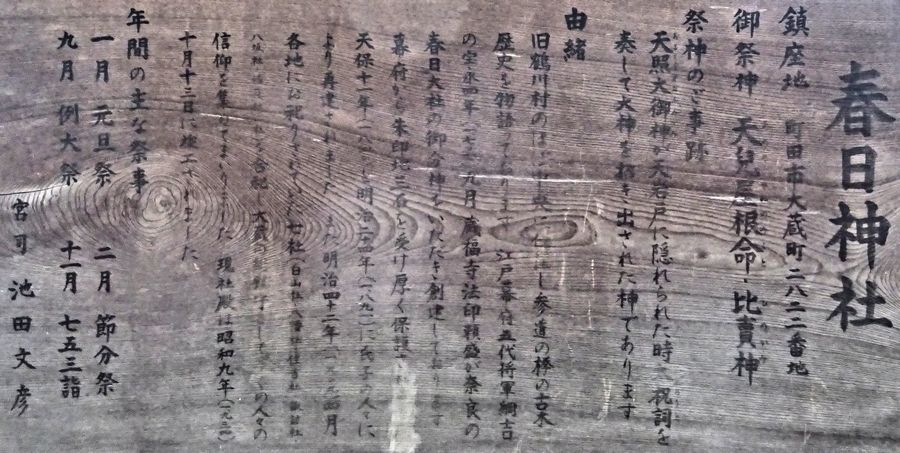 春日神社
鎮座地 町田市大蔵町二八二二番地
御祭神 天兒屋根命・比賣神
祭神のご事跡
天照大御神が天石戸に隠れられた時、祝詞を
奏して大神を招き出された神であります
由緒
旧鶴川村のほぼ中央に し参道の欅の古木
歴史を物語っております 江戸幕府五代将軍綱吉
の宝永四年(一七 九月 蔵福寺法印頼盛が奈良の
春日大社の御分神をいただき創建しており ます
幕府から朱印地 石を受け厚く保護
天保十一年(一八四 明治二十四年(一八九一)に氏子の人々に
より再建されました また明治四十二年(一九 月
各地にお祀りされていた七社(白山社 八幡社
八坂社 を合祀し大蔵 の人々の
信仰を集めてまいりました 現社殿は昭和九年(一九三四
十月十三日に竣工されました
年間の主な祭事
一月 元旦祭 二月 節分祭
九月 例大祭 十一月 七五三詣
宮司 池田文彦